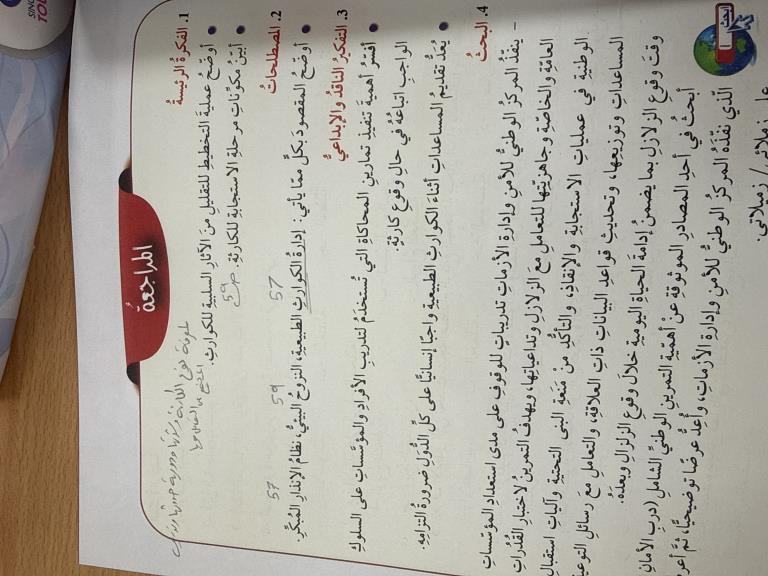 المراجعة
1. الفكرة الرئيسة
• أوضح عملية التخطيط للتقليل من الآثار السلبية للكوارث.
• أبين مكونات مرحلة الاستجابة للكارثة.
ص 59
2. المصطلحات
57 59 57
• أوضح المقصود بكل مما يأتي: إدارة الكوارث الطبيعية، النزوح البيئي، نظام الإنذار المبكر.
3. التفكير الناقد والإبداعي
• أفسر أهمية تنفيذ تمارين المحاكاة التي تستخدم لتدريب الأفراد والمؤسسات على السلوك
الواجب اتباعه في حال وقوع كارثة.
• يعد تقديم المساعدات أثناء الكوارث الطبيعية واجبا إنسانيا على كل الدول ضرورة التزامه.
4. البحث
– ينفذ المركز الوطني للأمن وإدارة الأزمات تدريبات للوقوف على مدى استعداد المؤسسات
العامة والخاصة وجاهزيتها للتعامل مع الزلازل وتداعياتها، ويهدف التمرين لاختبار القدرات
الوطنية في عمليات الاستجابة والإنقاذ، والتأكد من منعة البنى التحتية وآليات استقبال
المساعدات وتوزيعها، وتحديث قواعد البيانات ذات العلاقة، والتعامل مع رسائل
وقت وقوع الزلازل بما يضمن إدامة الحياة اليومية خلال وقوع الزلزال وبعده.
ابحث
أبحث في أحد المصادر الموثوقة عن أهمية التمرين الوطني الشامل (درب الأمان
الذي نفذه المركز الوطني للأمن وإدارة الأزمات، وأعد عرضا توضيحيا، ثم
على زملائي/ زميلاتي.